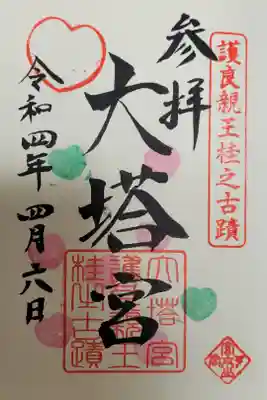 護良親王桂之古蹟
参拝
大塔宮
大塔宮
護良親王
桂之古蹟
令和四年四月六日